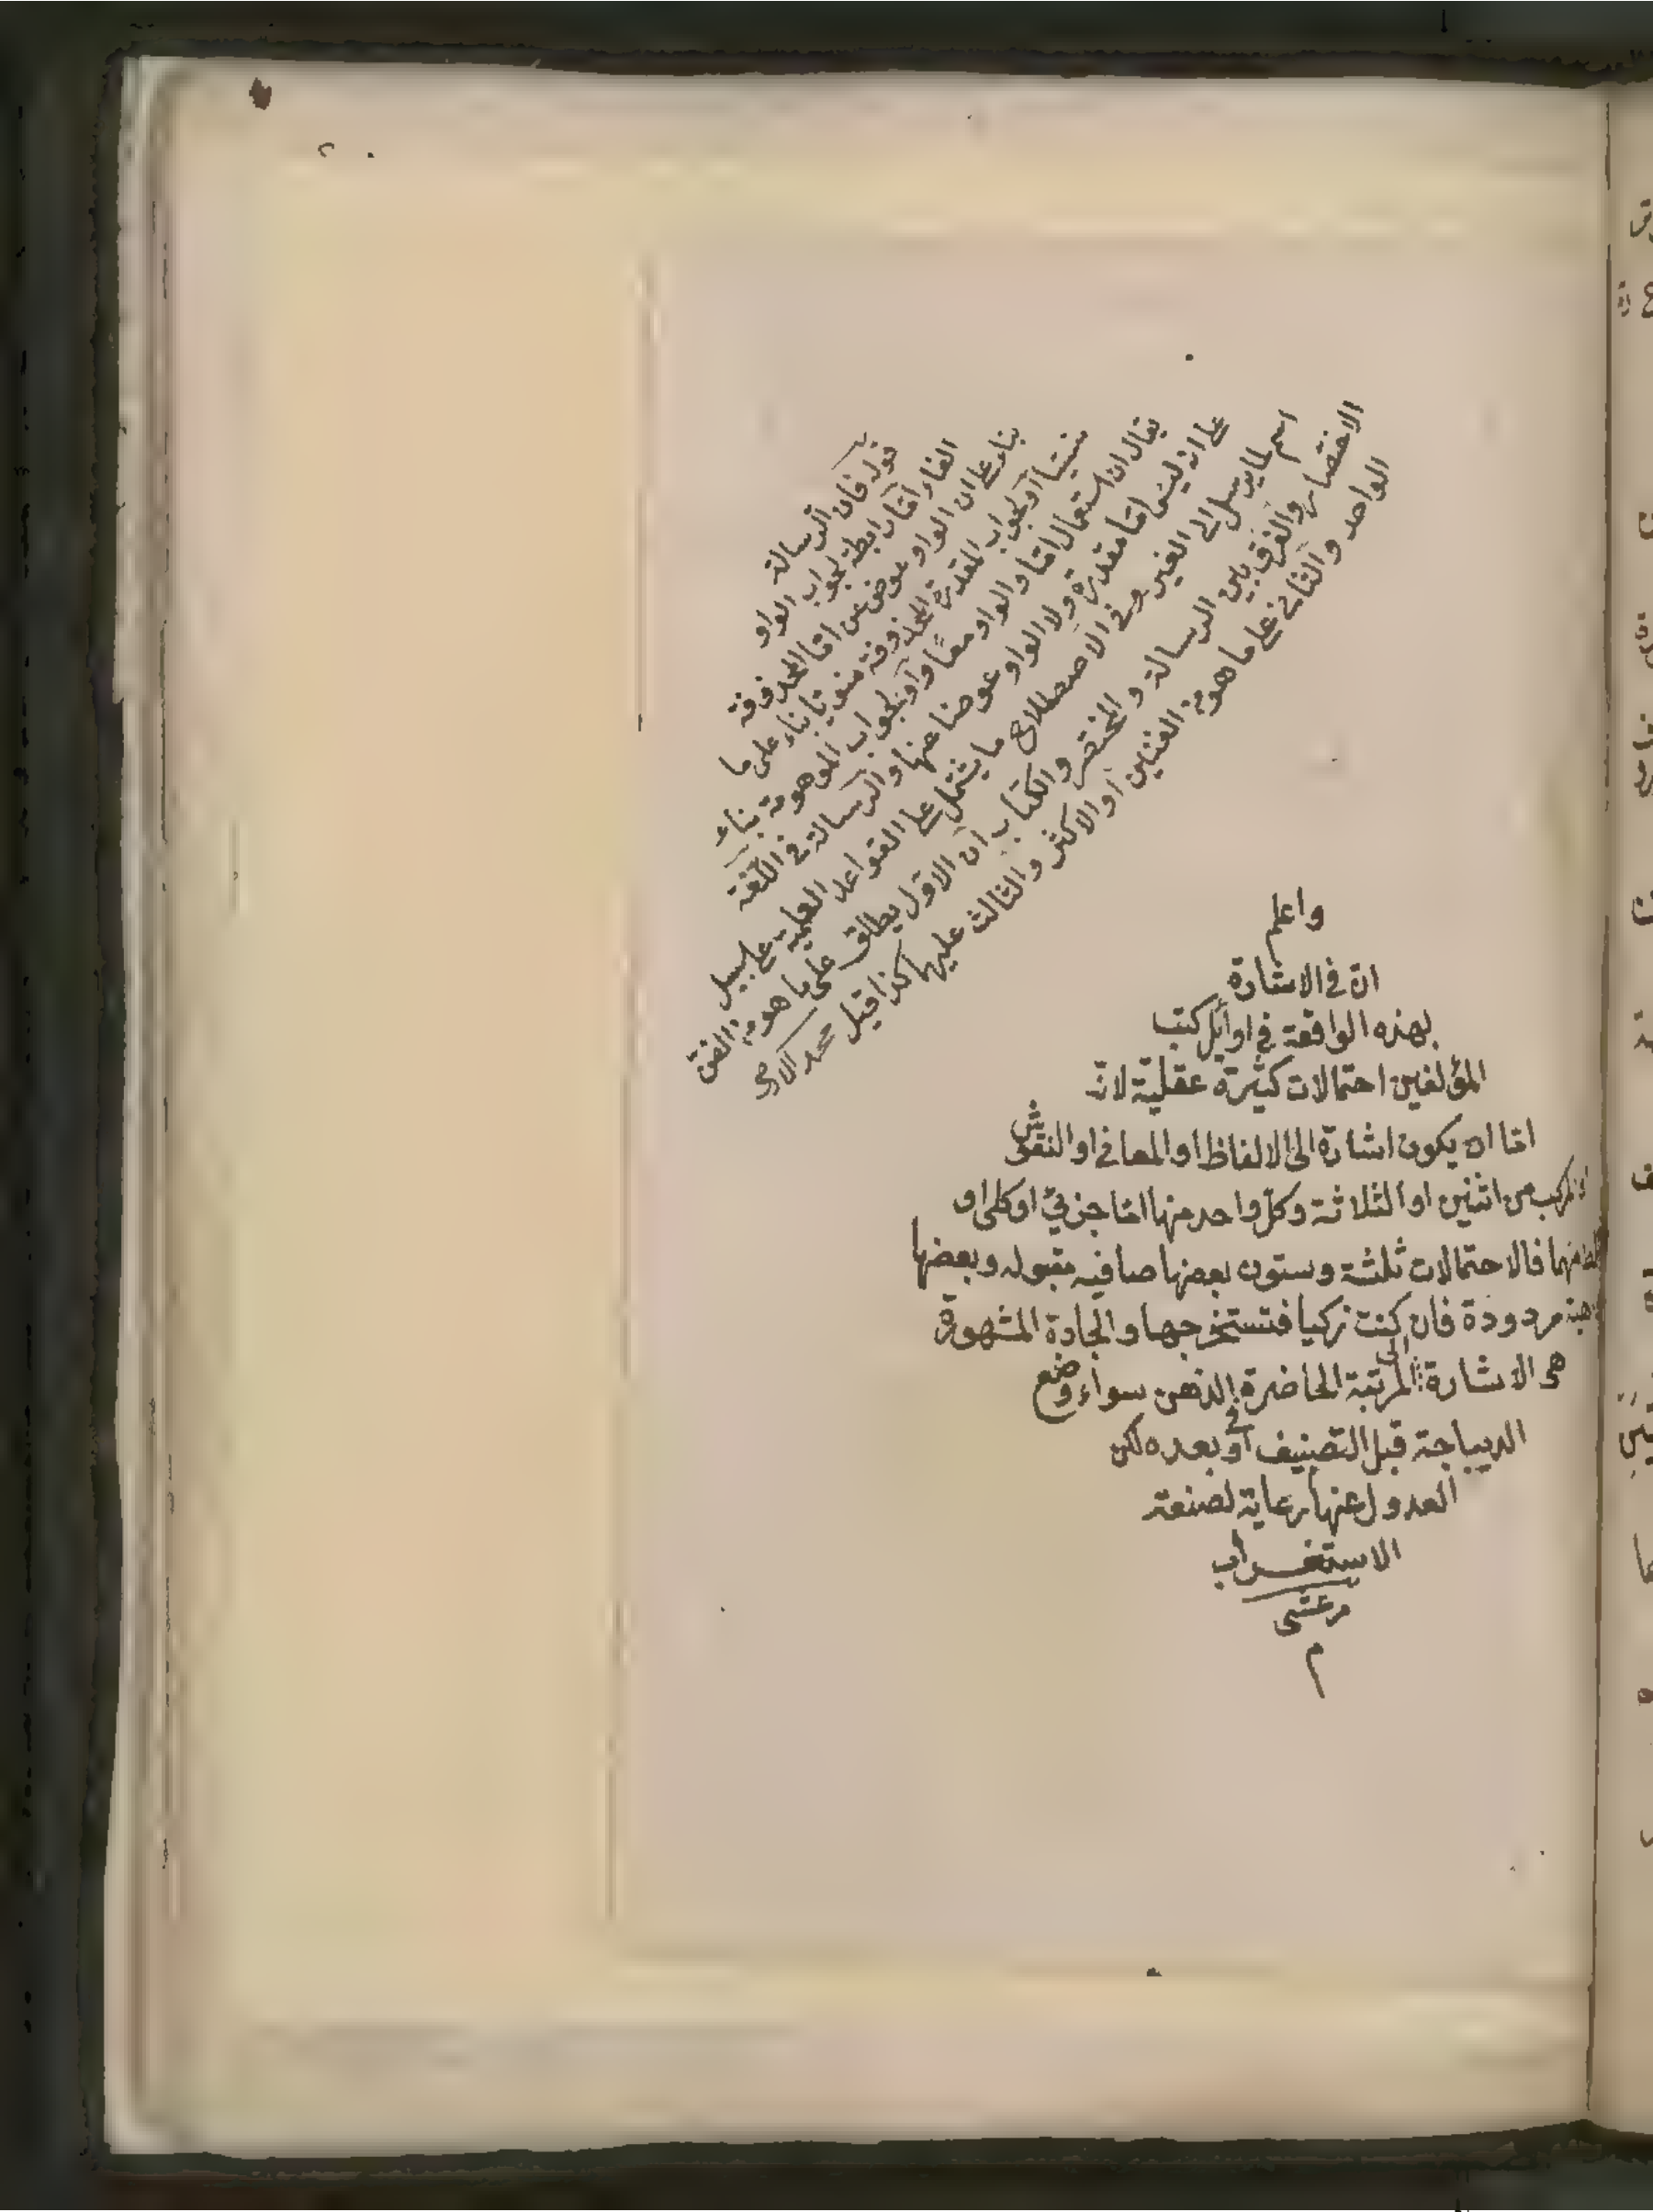 قوله فان الرسالة
الفاء اما رابطة لجواب الواو
بناء على ان الواو عوض عن اما المحذوفة
نسيا او لجواب المقدرة المحذوفة منويا بناء على ما
يقال ان استعمال اما والواو معا واو لجواب الموهومة بناء
على انه ليس اما مقدرة ولا الواو عوضا عنها والرسالة في اللغة
اسم لما يرسل الى الغير وفي الاصطلاح ما يشتمل على القواعد العلمية على سبيل
الاختصار والفرق بين الرسالة والمختصر والكتاب ان الاول يطلق على ما هو من الفن
الواحد والثاني على ما هو من الفنين او الاكثر والثالث عليهما كذا قيل محمد
واعلم
ان في الاشارة
بهذه الواقعة في اوائل كتب
المؤلفين احتمالات كثيرة عقلية لانه
اما ان يكون اشارة الى الالفاظ او المعاني او النقوش
المركب من اثنين او الثلاثة وكل واحد منها اما جزئي او كلي او
منهما فالاحتمالات ثلثة وستون بعضها صافيه مقبوله وبعضها
مردودة فان كنت زكيا فتستخرجها والجادة المشهورة
هى الاشارة الى المرتبة الحاضرة في الذهن سواء وضع
الديباجة قبل التصنيف او بعده لكن
العدول عنها رعاية لصنعة
الاستغراب
مرعشى
م